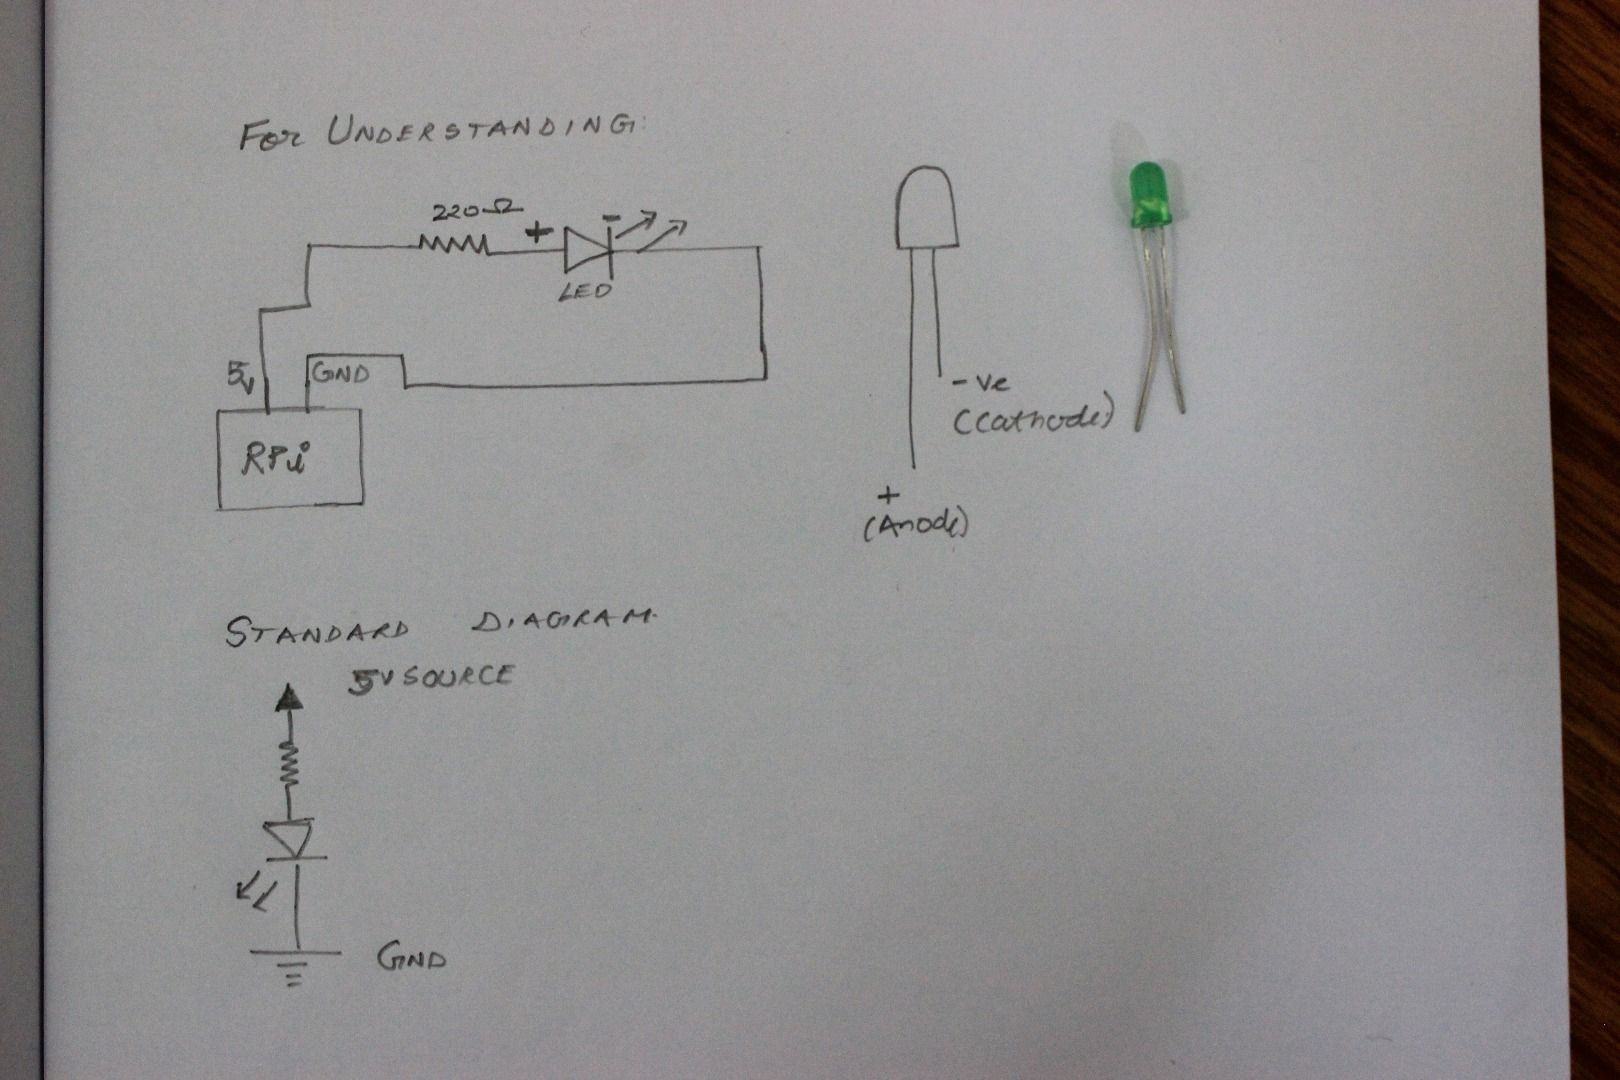 FOR UNDERSTANDING:
220Ω
+ -
LED
5V
GND
RPi
-ve
(Cathode)
+
(Anode)
STANDARD DIAGRAM.
5V SOURCE
GND